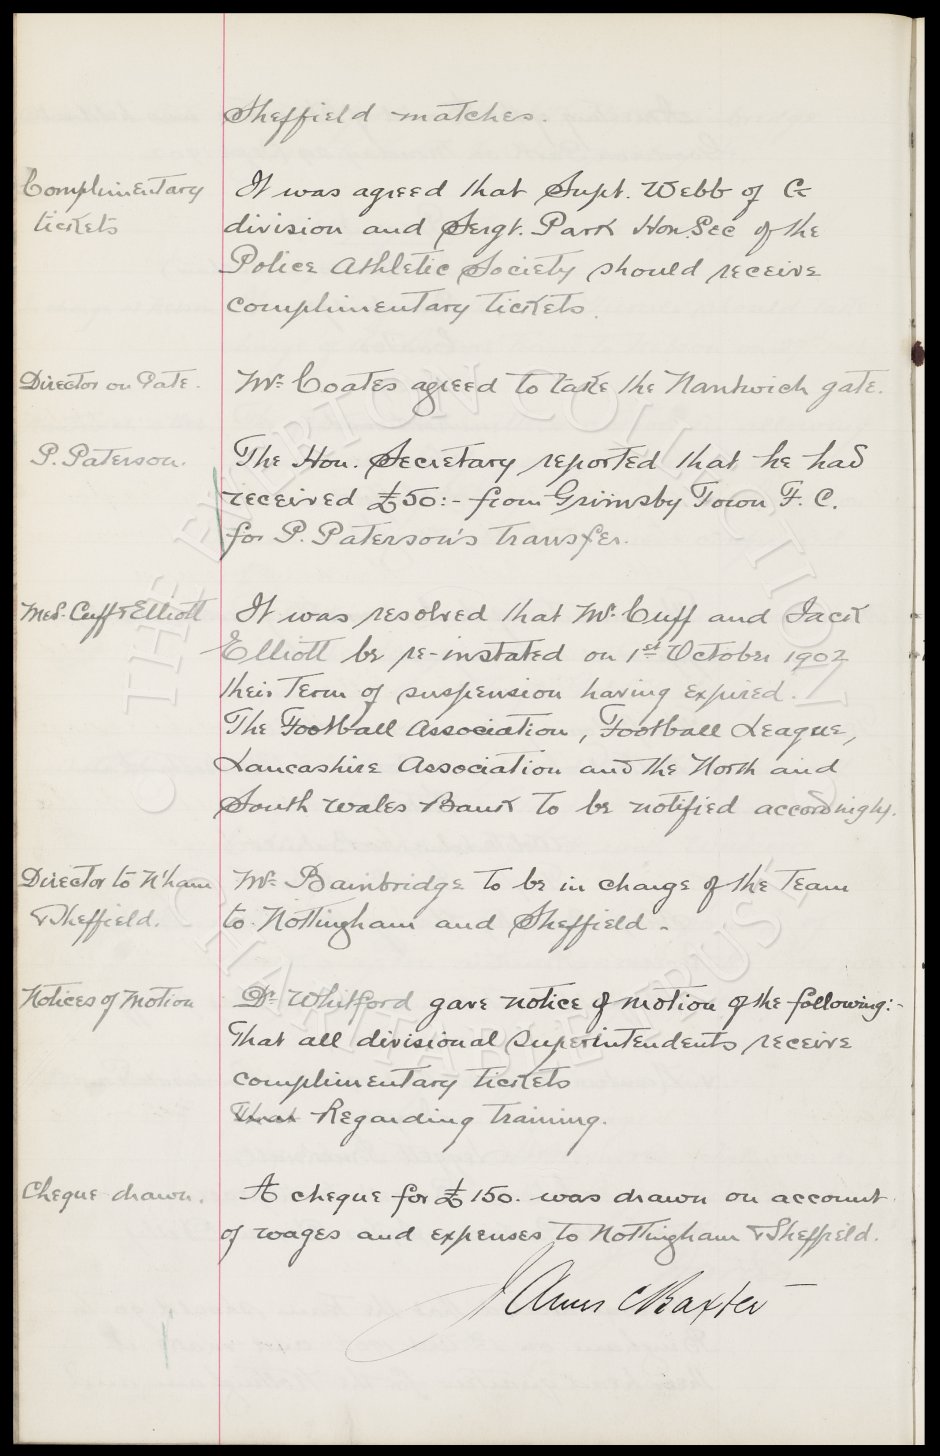 Sheffield matches.
Complimentary It was agreed that Supt. Webb of G
tickets division and Sergt. Park Hon. Sec of the
Police Athletic Society should receive
complimentary tickets.
Director on Gate. Mr. Coates agreed to take the Nantwich gate.
P. Paterson. The Hon. Secretary reported that he had
received £50:- from Grimsby Town F. C.
for P. Paterson's transfer.
Mes. Cuff & Elliott It was resolved that Mr. Cuff and Jack
Elliott be re-instated on 1st October 1902
their term of suspension having expired.
The Football Association, Football League,
Lancashire Association and the North and
South Wales Bank to be notified accordingly.
Director to N'ham Mr. Bainbridge to be in charge of the team
& Sheffield. to Nottingham and Sheffield.
Notices of Motion Dr. Whitford gave notice of motion of the following:-
That all divisional superintendents receive
complimentary tickets
That Regarding training.
Cheque drawn. A cheque for £150. was drawn on account
of wages and expenses to Nottingham & Sheffield.
James C Baxter
© THE EVERTON COLLECTION
CHARITABLE TRUST